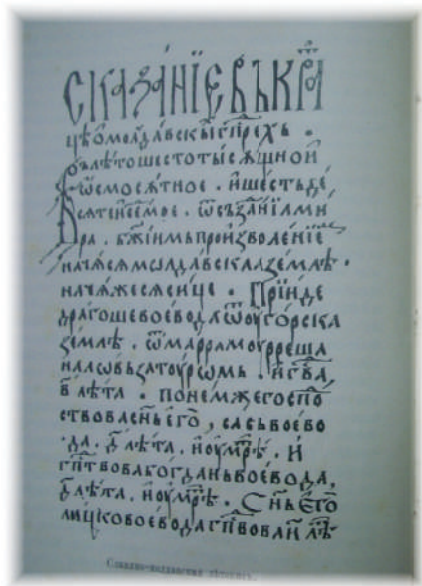 СКАЗАНЇЕ ВЪ КРА
цѣ ѡ молдавскы гпⷣрехь .
Въ лѣто шестотысѧщной
ѡсмосѧтное . и шестьде
сѧтнсемое . ѿ създанїѧ ми
ра . бж҃їимь произволенїе
начѧсѧ мѡлдавскаа землѣ .
начѧ же сѧ сице . Прїиде
драгоше воевода ѿ оугорска
землѣ . ѿ марамоуреша
на лѡвь за тоурѡмь .
в҃ лѣта . по нем же госпо
ствова сн҃ь его , сась воево
да . д҃ лѣта , и оумрѣ . И
гпⷣтвова богдань воевода ,
д҃ лѣта , и оумрѣ . Сн҃ь его
лацко воевода гпⷣвова